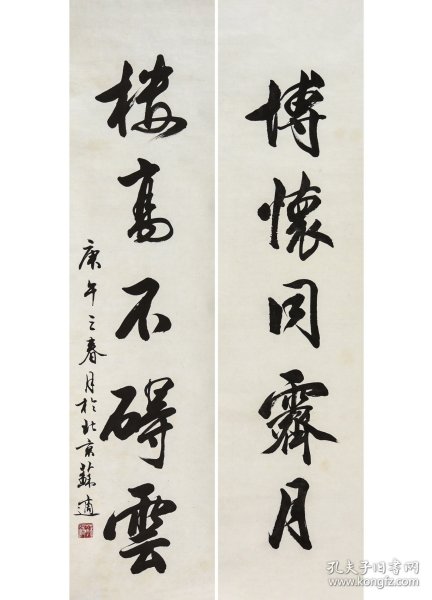 博懷同霽月
楼高不碍雲
庚午之春月於北京蘇適
孔夫子旧书网
www.kongfz.com